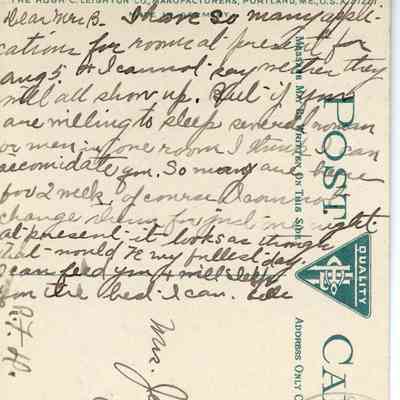 THE HUGH C. LEIGHTON CO., MANUFACTURERS, PORTLAND, ME., U.S.A.
Dear Mrs B. I have so many appli-
cations for rooms at present for
Aug 5. & I cannot say wether they
will all show up. But if you
are willing to sleep several women
or men in one room I think I can
accomidate you. So many are here
for 2 week, of course I can not
change them for just one night
at present it looks as though
that would be my fullest day.
I can feed you & will sleep
for the best I can.
Mrs.
POST CA
MESSAGE MAY BE WRITTEN ON THIS SIDE
QUALITY
ADDRESS ONLY